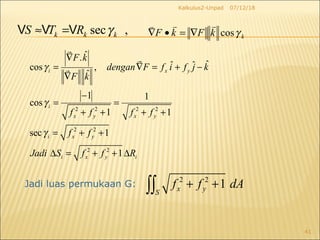 Kalkulus2-Unpad 07/12/18
∇S ≈ ∇T = ∇R_k sec γ_k , ∇⃗F • k⃗ = |∇⃗F| |k⃗| cos γ_k
cos γ_i = ∇⃗F.k̂ / |∇⃗F| |k̂| , dengan ∇⃗F = f_x î + f_y ĵ − k̂
cos γ_i = |−1| / √(f_x² + f_y² + 1) = 1 / √(f_x² + f_y² + 1)
sec γ_i = √(f_x² + f_y² + 1)
Jadi ΔS_i = √(f_x² + f_y² + 1) ΔR_i
Jadi luas permukaan G: ∬_S √(f_x² + f_y² + 1) dA
41